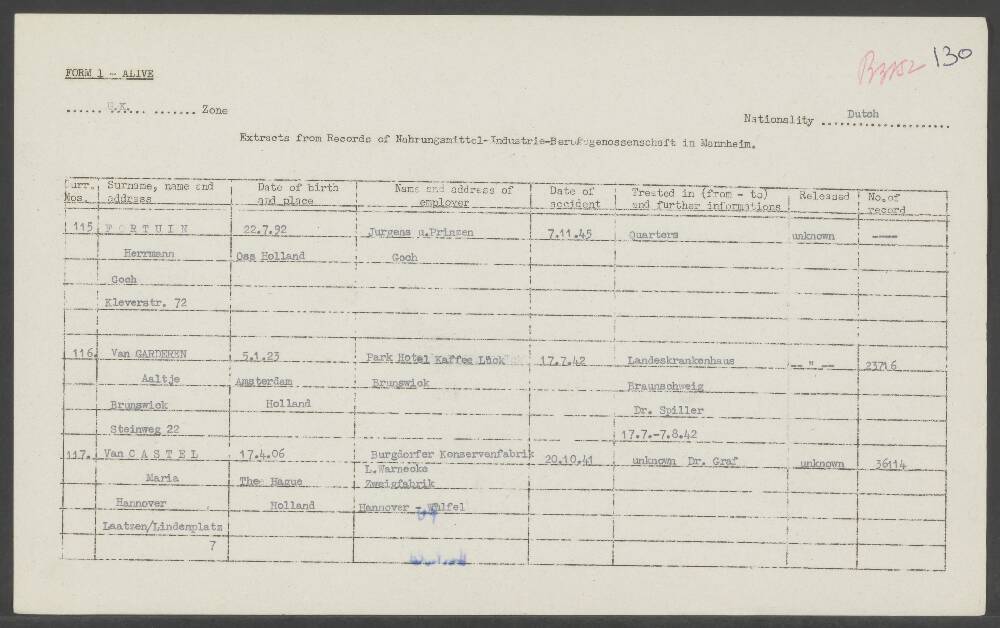 130
FORM 1 - ALIVE
...... U.K. ....... Zone
Nationality Dutch
Extracts from Records of Nahrungsmittel-Industrie-Berufsgenossenschaft in Mannheim.
Curr. Nos. Surname, name and address Date of birth and place Name and address of employer Date of accident Treated in (from - to) and further informations Released No. of record
115 FORTUIN 22.7.92 Jurgens u.Prinzen 7.11.45 Quarters unknown ----
Herrmann Oss Holland Goch
Goch
Kleverstr. 72
116. Van GARDEREN 5.1.23 Park Hotel Kaffee Lück 17.7.42 Landeskrankenhaus -- " -- 23716
Aaltje Amsterdam Brunswick Braunschweig
Brunswick Holland Dr. Spiller
Steinweg 22 17.7.-7.8.42
117. Van CASTEL 17.4.06 Burgdorfer Konservenfabrik 20.10.41 unknown Dr. Graf unknown 36114
L.Warnecke
Maria The Hague Zweigfabrik
Hannover Holland Hannover - Wülfel
Laatzen/Lindenplatz
7